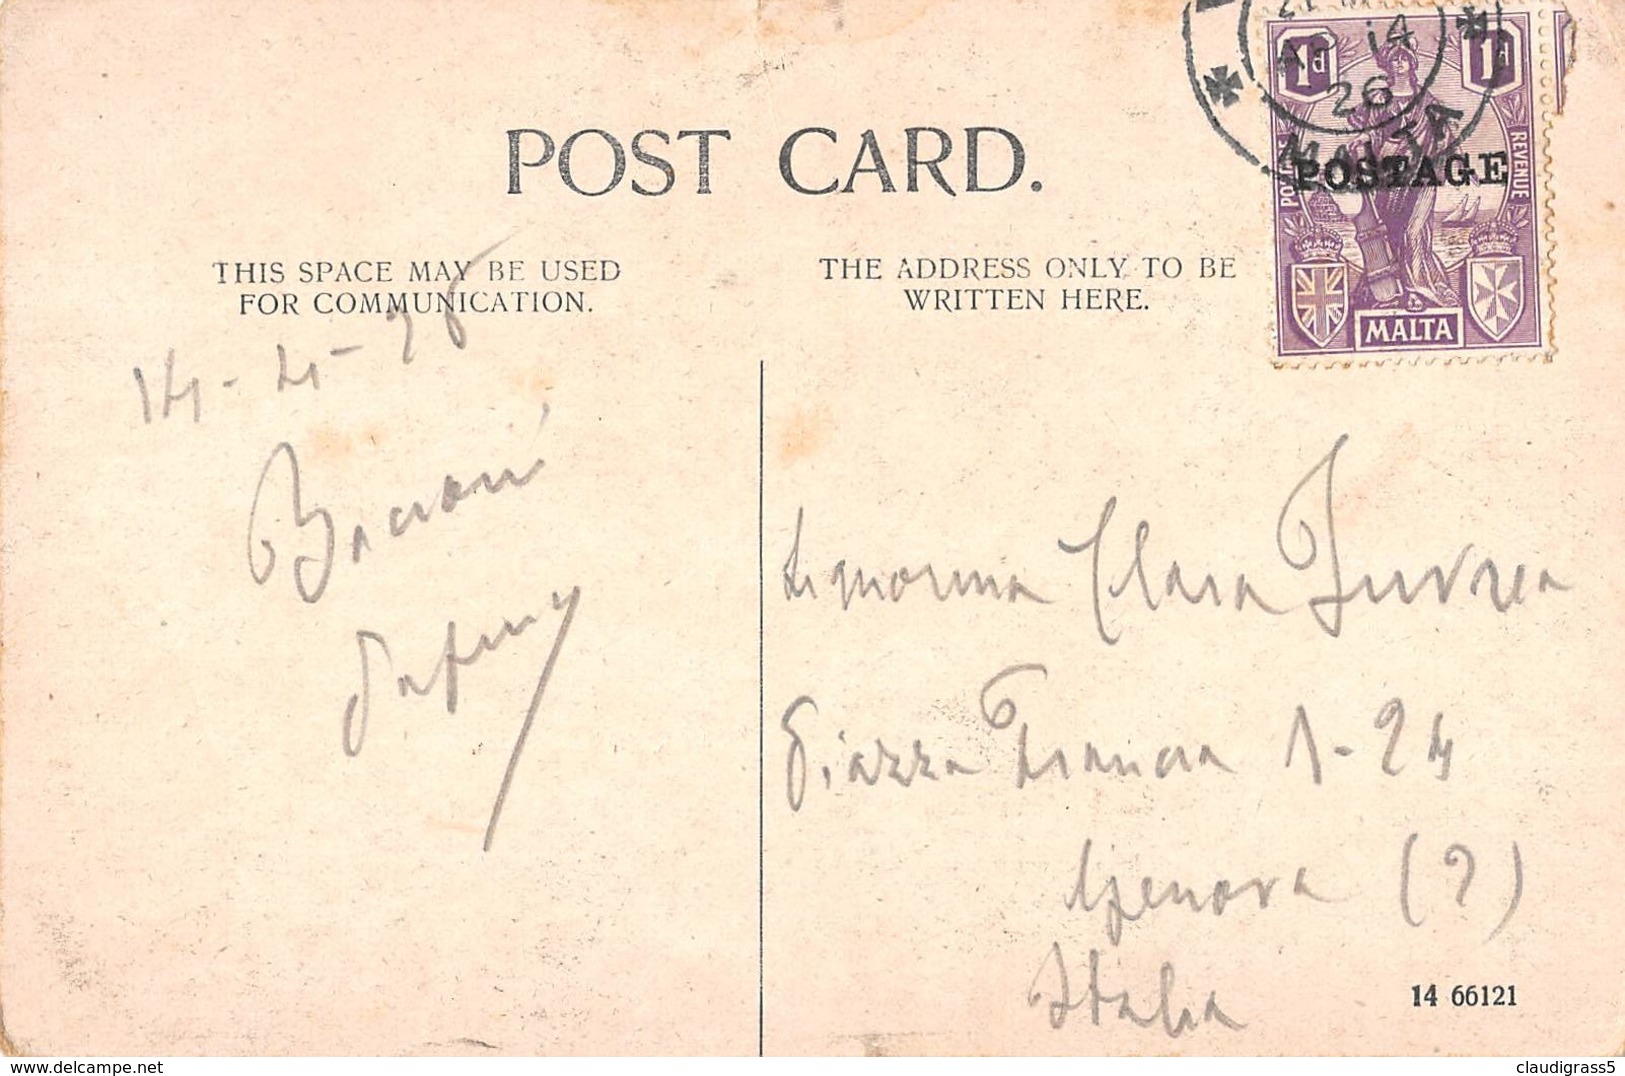 21 M
AP 14
26
MALTA
1d
1d
POSTAGE
REVENUE
POSTAGE
MALTA
POST CARD.
THIS SPACE MAY BE USED
FOR COMMUNICATION.
THE ADDRESS ONLY TO BE
WRITTEN HERE.
14-4-26
Bacioni
Signorina Clara
Piazza Francia 1-24
Genova (?)
Italia
14 66121
claudigrass5